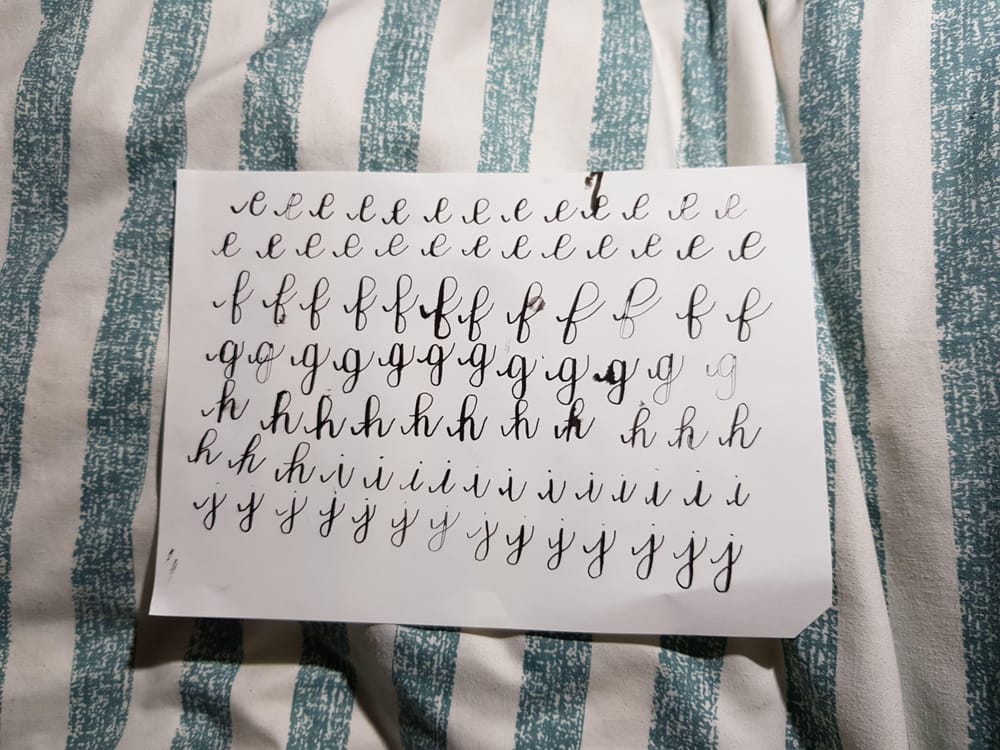 e e e e e e e e e e e e e
e e e e e e e e e e e e e
f f f f f f f f f f f f
g g g g g g g g g g g g
h h h h h h h h h h h
h h h i i i i i i i i i i i i
j j j j j j j j j j j j j j